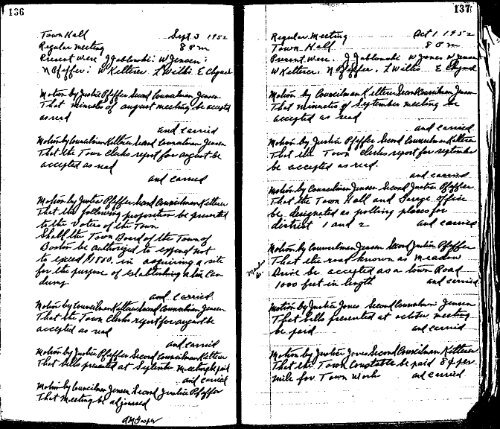 136
Town Hall Sept 3 1952
Regular Meeting 8 P m
Present were J Jablonski: W Jensen:
N Pfeffer: W Kettner: L Willi: E
Motion by Justice Pfeffer Second Councilman Jensen
That minutes of august meeting be accepted
as read
and carried
Motion by Councilman Kettner Second Councilman Jensen
That the Town Clerks report for august be
accepted as read
and carried
Motion by Justice Pfeffer Second Councilman Kettner
That the following proposition be presented
to the Voters of the Town
Shall the Town Board of the Town of
be authorized to expend not
to exceed in acquiring a site
for the purpose of establishing a
and carried
Motion by Councilman Kettner Second Councilman Jensen
That the Town Clerks report for august be
accepted as read
and carried
Motion by Justice Pfeffer Second Councilman Kettner
That bills presented at September Meeting be paid
and carried
Motion by Councilman Jensen Second Justice Pfeffer
That Meeting be adjourned
137
Regular Meeting Oct 1 1952
Town Hall 8 P m
Present were J Jablonski W Jones W Jensen
W Kettner: N Pfeffer: L Willi E
Motion by Councilman Kettner Second Councilman Jensen
That minutes of September meeting be
accepted as read
and carried
Motion by Justice Pfeffer Second Councilman Kettner
That the Town Clerks report for September
be accepted as read.
and carried
Motion by Councilman Jensen Second Justice Pfeffer
That the Town Hall and office
be designated as polling places for
district 1 and 2 and carried
Motion by Councilman Jensen Second Justice Pfeffer
That the road known as Meadow
Drive be accepted as a town Road
1000 feet in length and carried
Motion by Justice Jones Second Councilman Jensen
That bills presented at october meeting
be paid and carried
Motion by Justice Jones Second Councilman Kettner
That the Town Constable be paid 8¢ per
mile for Town Work and carried